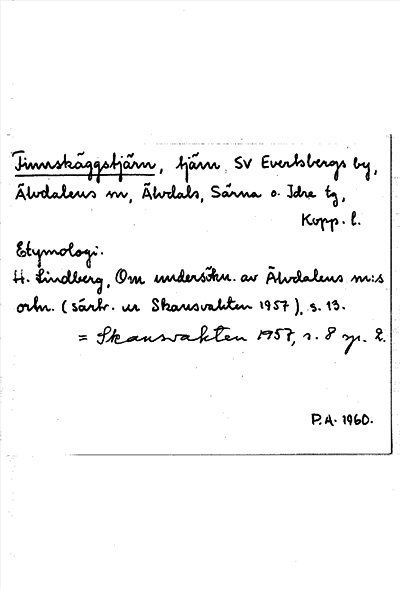 Finnskäggstjärn, tjärn SV Evertsbergs by,
Älvdalens sn, Älvdals, Särna o. Idre tg,
Kopp. l.
Etymologi.
H. Lindberg, Om undersökn. av Älvdalens sn:s
ortn. (särtr. ur Skansvakten 1957), s. 13.
= Skansvakten 1957, s. 8 sp. 2.
P.A. 1960.